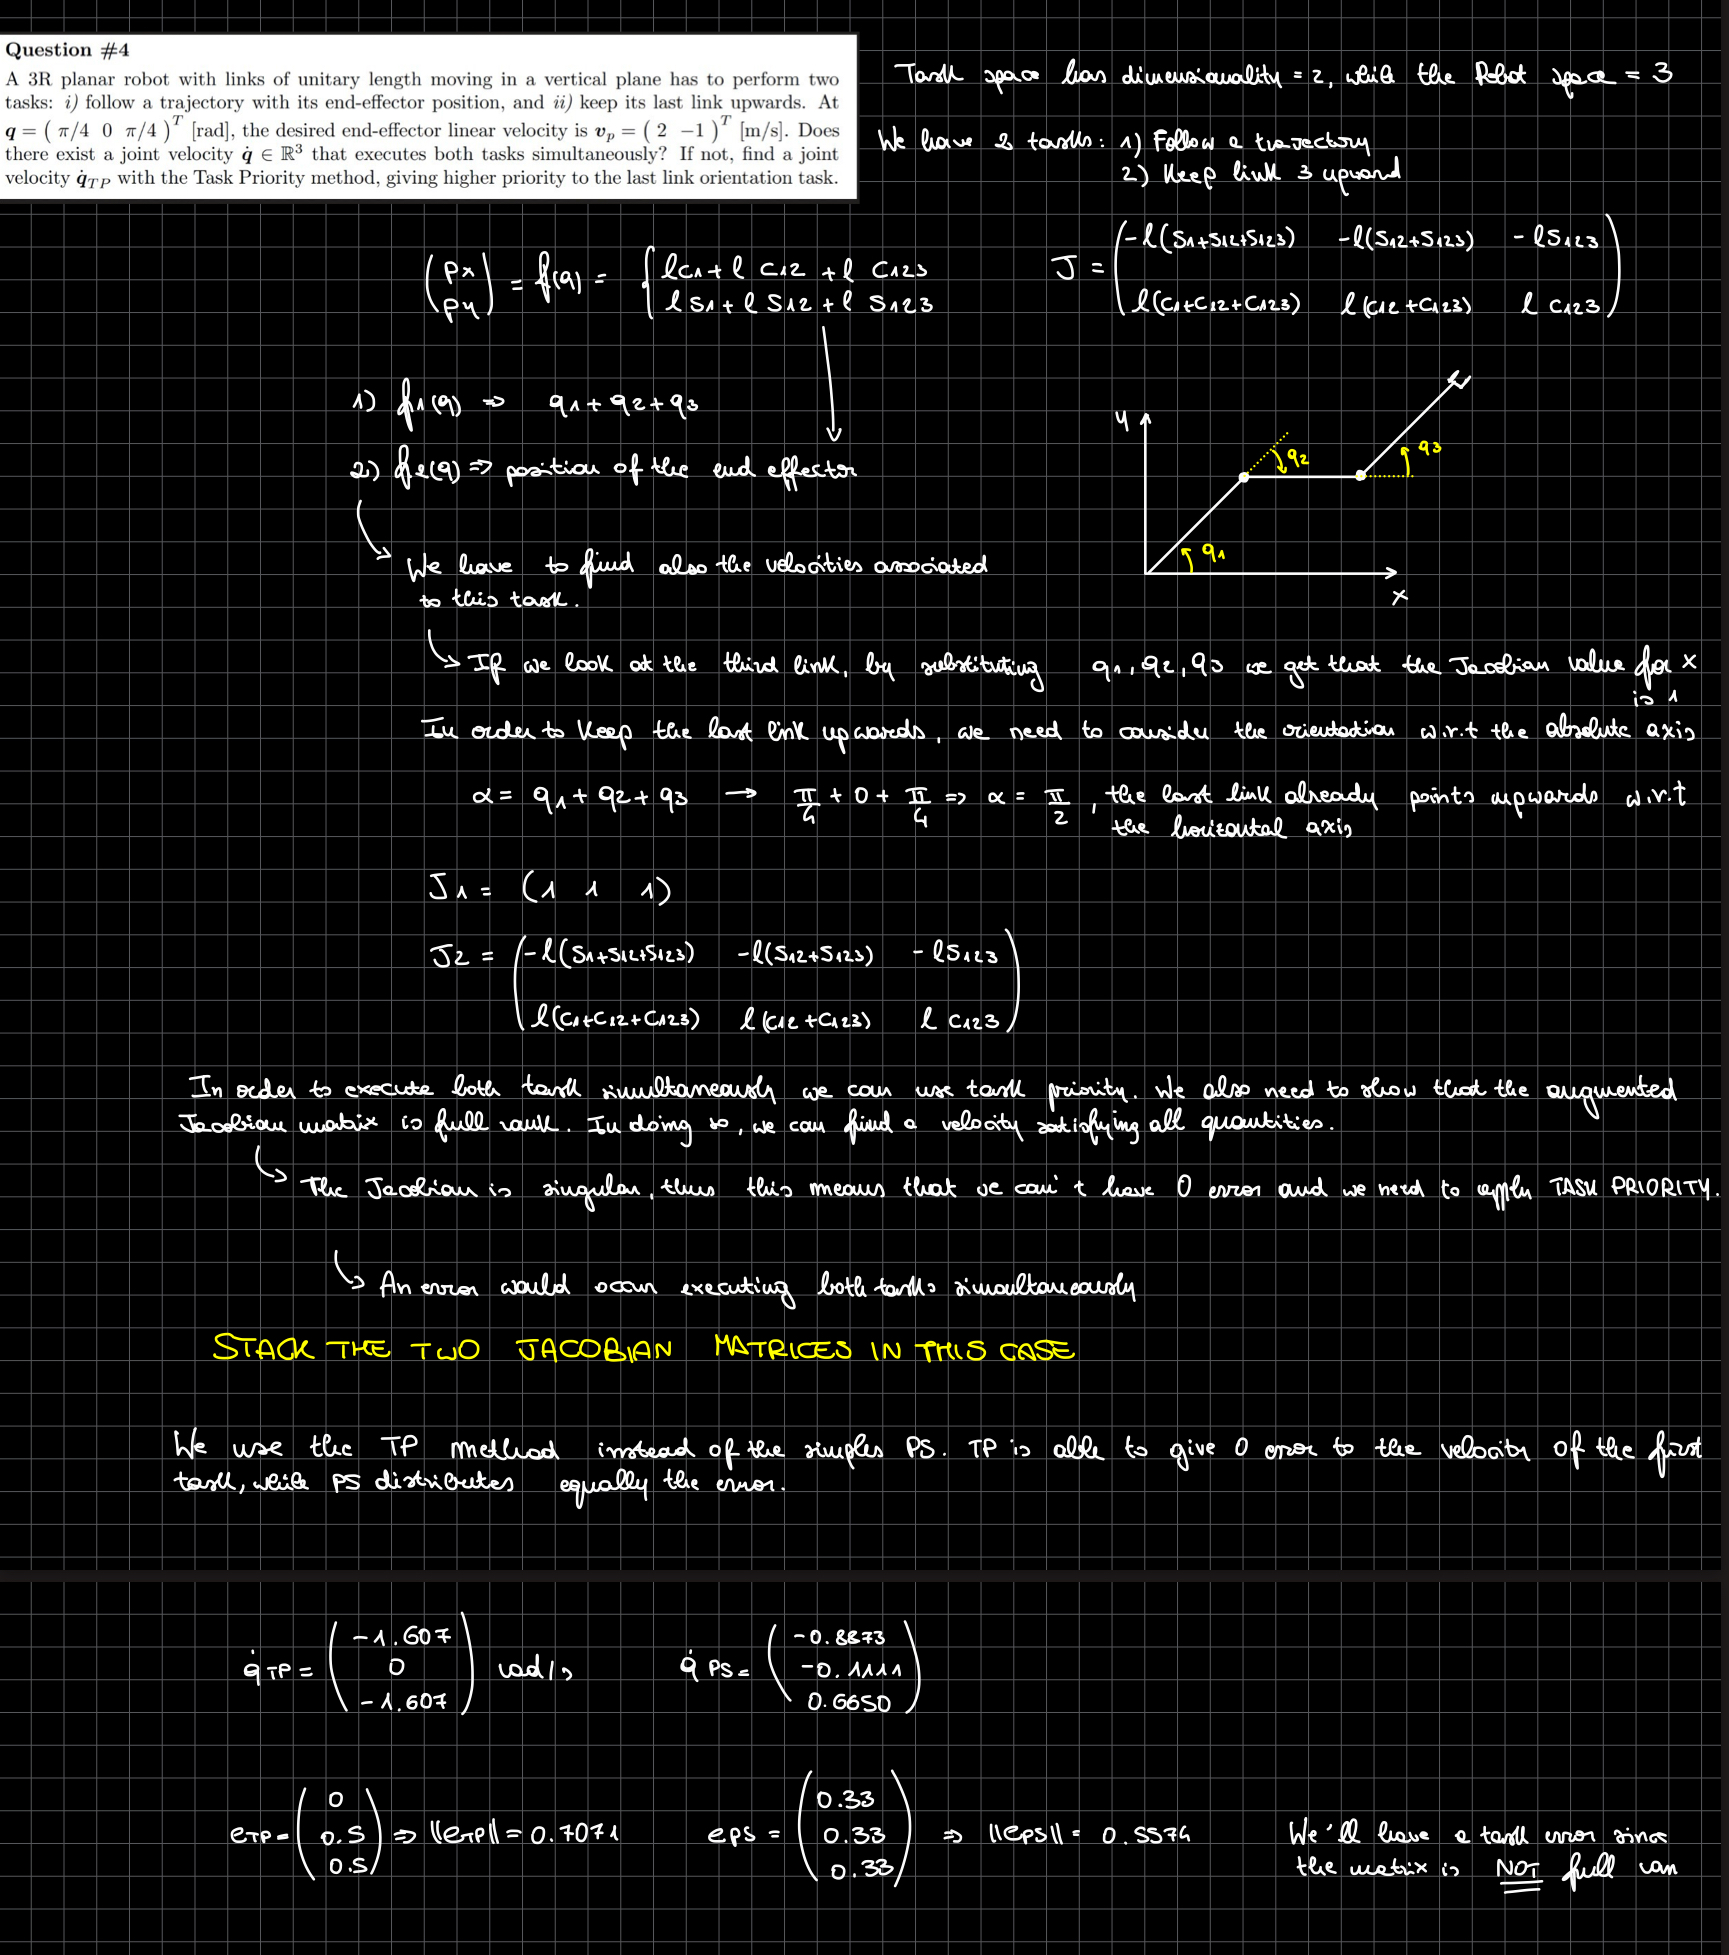 Question #4
A 3R planar robot with links of unitary length moving in a vertical plane has to perform two
tasks: i) follow a trajectory with its end-effector position, and ii) keep its last link upwards. At
q = ( π/4 0 π/4 )^T [rad], the desired end-effector linear velocity is v_p = ( 2 −1 )^T [m/s]. Does
there exist a joint velocity q̇ ∈ ℝ³ that executes both tasks simultaneously? If not, find a joint
velocity q̇_TP with the Task Priority method, giving higher priority to the last link orientation task.
Task space has dimensionality = 2, while the Robot space = 3
We have 2 tasks: 1) Follow a trajectory
2) Keep link 3 upward
(px py) = f(q) = { lc1 + l c12 + l c123
l s1 + l s12 + l s123
J = ( -l(s1+s12+s123) -l(s12+s123) -ls123
l(c1+c12+c123) l(c12+c123) l c123 )
1) f1(q) ⇒ q1+q2+q3
2) f2(q) ⇒ position of the end effector
y
q2
q3
q1
x
We have to find also the velocities associated
to this task.
If we look at the third link, by substituting q1, q2, q3 we get that the Jacobian value for x
is 1
In order to keep the last link upwards, we need to consider the orientation w.r.t the absolute axis
α = q1 + q2 + q3 → π/4 + 0 + π/4 ⇒ α = π/2, the last link already points upwards w.r.t
the horizontal axis
J1 = (1 1 1)
J2 = ( -l(s1+s12+s123) -l(s12+s123) -ls123
l(c1+c12+c123) l(c12+c123) l c123 )
In order to execute both task simultaneously we can use task priority. We also need to show that the augmented
Jacobian matrix is full rank. In doing so, we can find a velocity satisfying all quantities.
The Jacobian is singular, thus this means that we can't have 0 error and we need to apply TASK PRIORITY.
An error would occur executing both tasks simoultaneously
STACK THE TWO JACOBIAN MATRICES IN THIS CASE
We use the TP method instead of the simples PS. TP is able to give 0 error to the velocity of the first
task, while PS distributes equally the error.
q̇TP = ( -1.607 0 -1.607 ) rad/s q̇PS = ( -0.8873 -0.1111 0.6650 )
eTP = ( 0 0.5 0.5 ) ⇒ ||eTP|| = 0.7071 ePS = ( 0.33 0.33 0.33 ) ⇒ ||ePS|| = 0.5574 We'll have a task error since
the matrix is NOT full ran